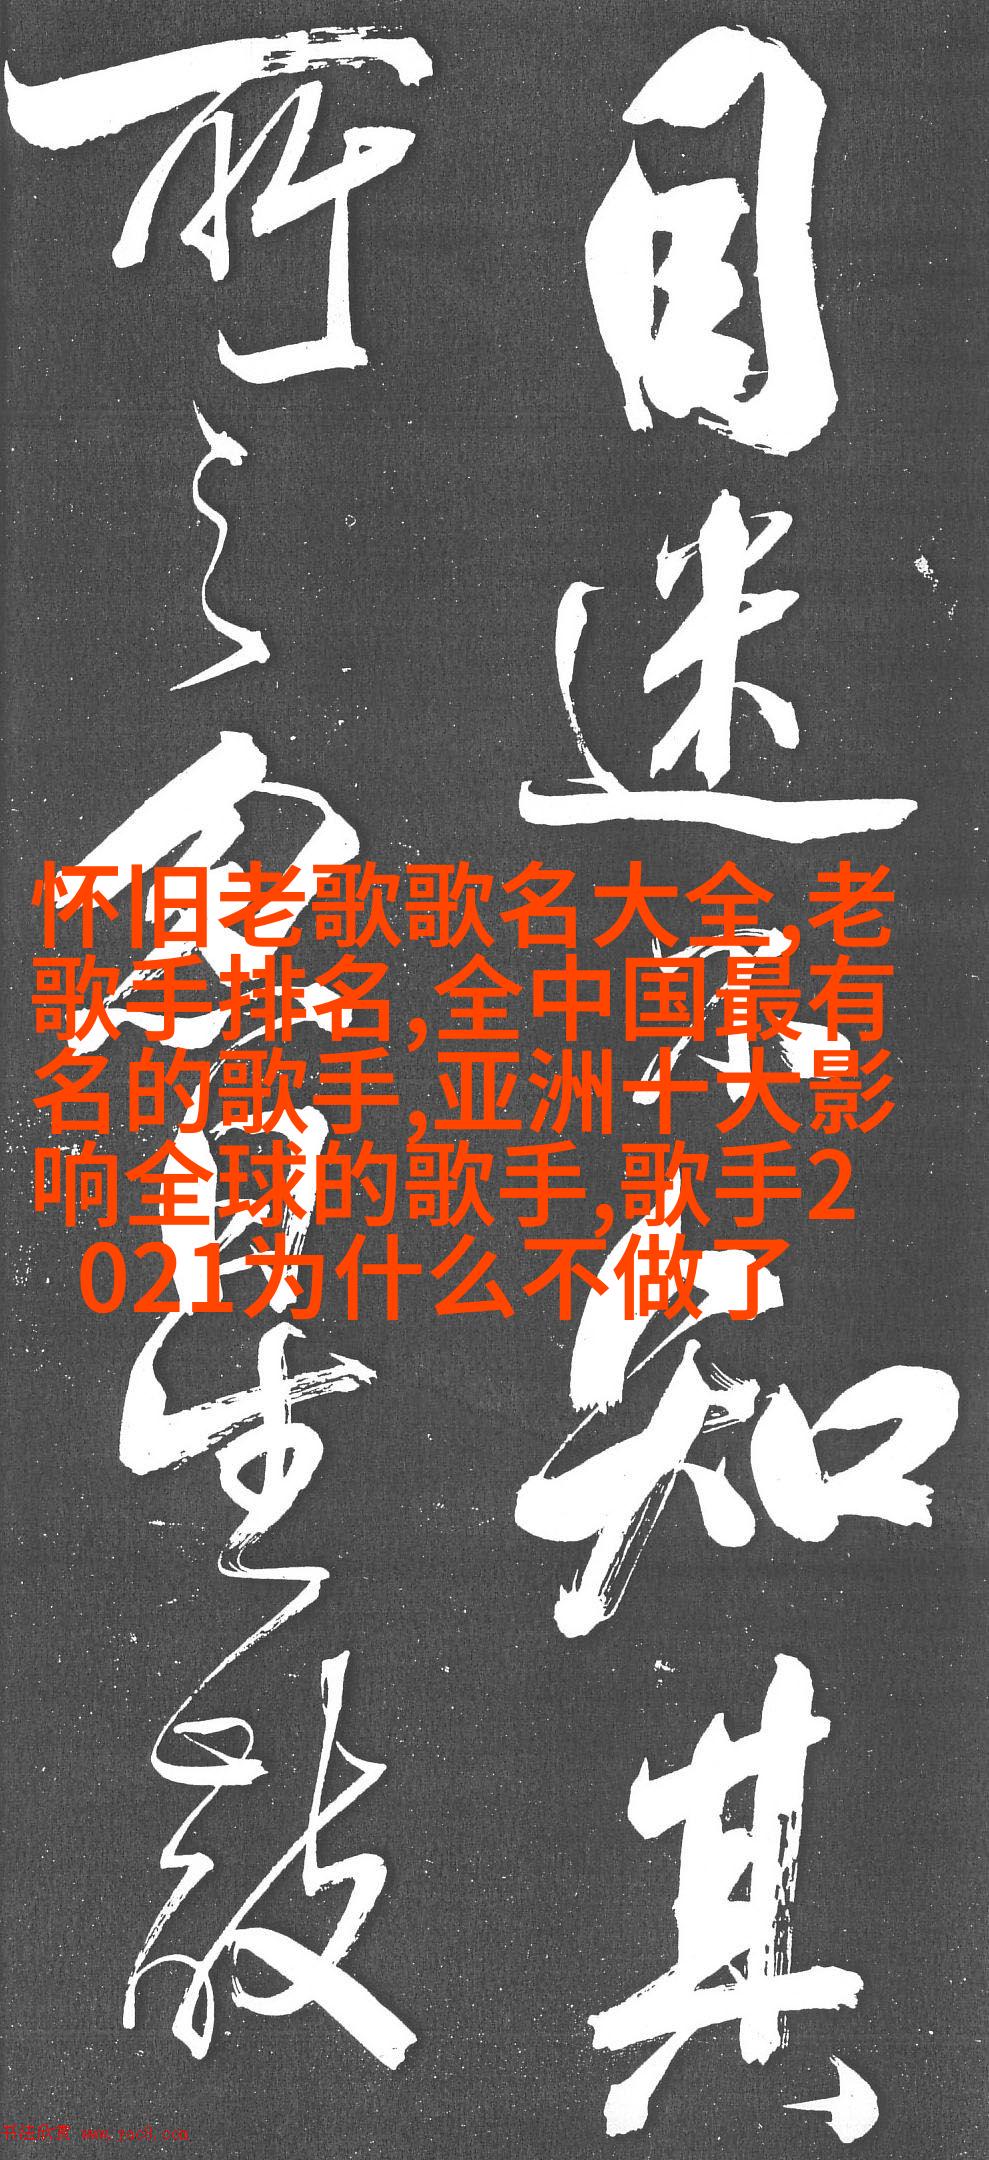 目迷不知其
所之
生
怀旧老歌歌名大全,老
歌手排名,全中国最有
名的歌手,亚洲十大影
响全球的歌手,歌手2
021为什么不做了
书法欣赏